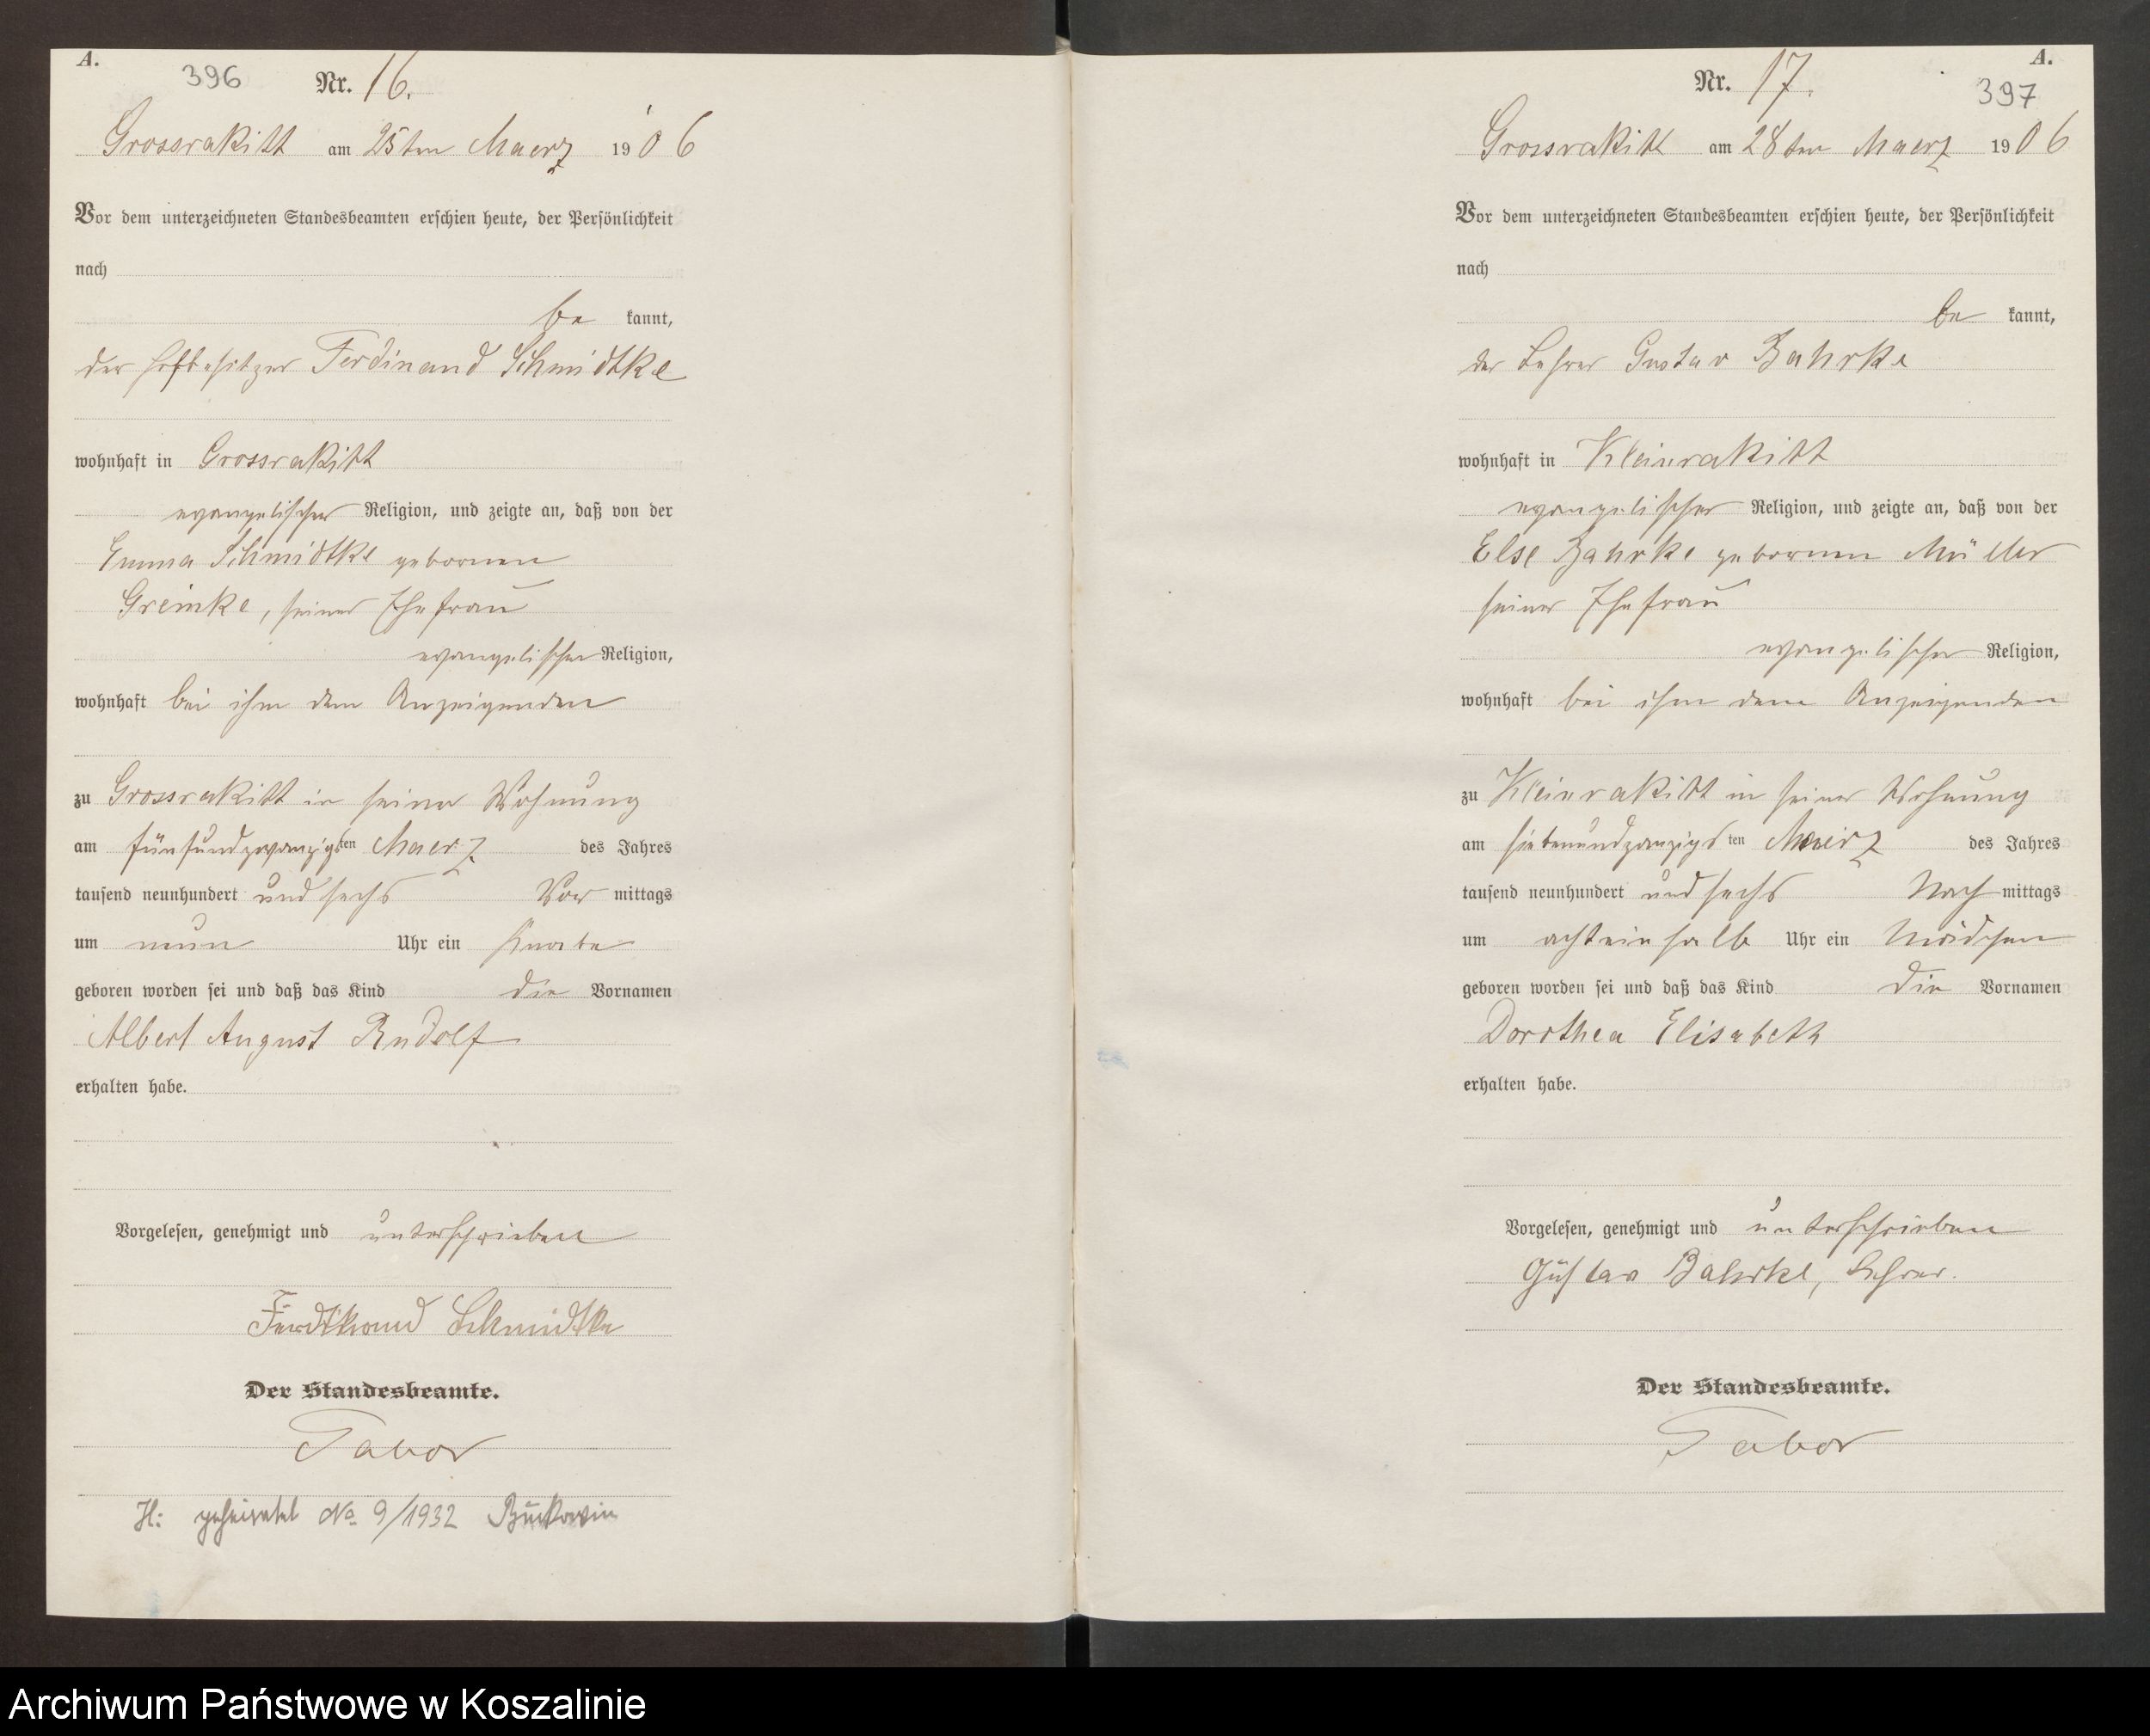 A.
396
Nr. 16.
Grossrakitt am 25ten Maerz 1906
Vor dem unterzeichneten Standesbeamten erschien heute, der Persönlichkeit
nach
be kannt,
der Hofbesitzer Ferdinand Schmidtke
wohnhaft in Grossrakitt
evangelischer Religion, und zeigte an, daß von der
Emma Schmidtke gebornen
Greinke, seiner Ehefrau
evangelischer Religion,
wohnhaft bei ihm dem Anzeigenden
zu Grossrakitt in seiner Wohnung
am fünfundzwanzigsten Maerz des Jahres
tausend neunhundert und sechs Vor mittags
um neun Uhr ein Knabe
geboren worden sei und daß das Kind die Vornamen
Albert August Rudolf
erhalten habe.
Vorgelesen, genehmigt und unterschrieben
Ferdinand Schmidtke
Der Standesbeamte.
Tabor
H: geheiratet No 9/1932 Buckowin
A.
Nr. 17.
397
Grossrakitt am 28ten Maerz 1906
Vor dem unterzeichneten Standesbeamten erschien heute, der Persönlichkeit
nach
be kannt,
der Lehrer Gustav Bahrke
wohnhaft in Kleinrakitt
evangelischer Religion, und zeigte an, daß von der
Else Bahrke gebornen Müller
seiner Ehefrau
evangelischer Religion,
wohnhaft bei ihm dem Anzeigenden
zu Kleinrakitt in seiner Wohnung
am siebenundzwanzigsten Maerz des Jahres
tausend neunhundert und sechs Nach mittags
um achteinhalb Uhr ein Mädchen
geboren worden sei und daß das Kind die Vornamen
Dorothea Elisabeth
erhalten habe.
Vorgelesen, genehmigt und unterschrieben
Gustav Bahrke, Lehrer.
Der Standesbeamte.
Tabor
Archiwum Państwowe w Koszalinie